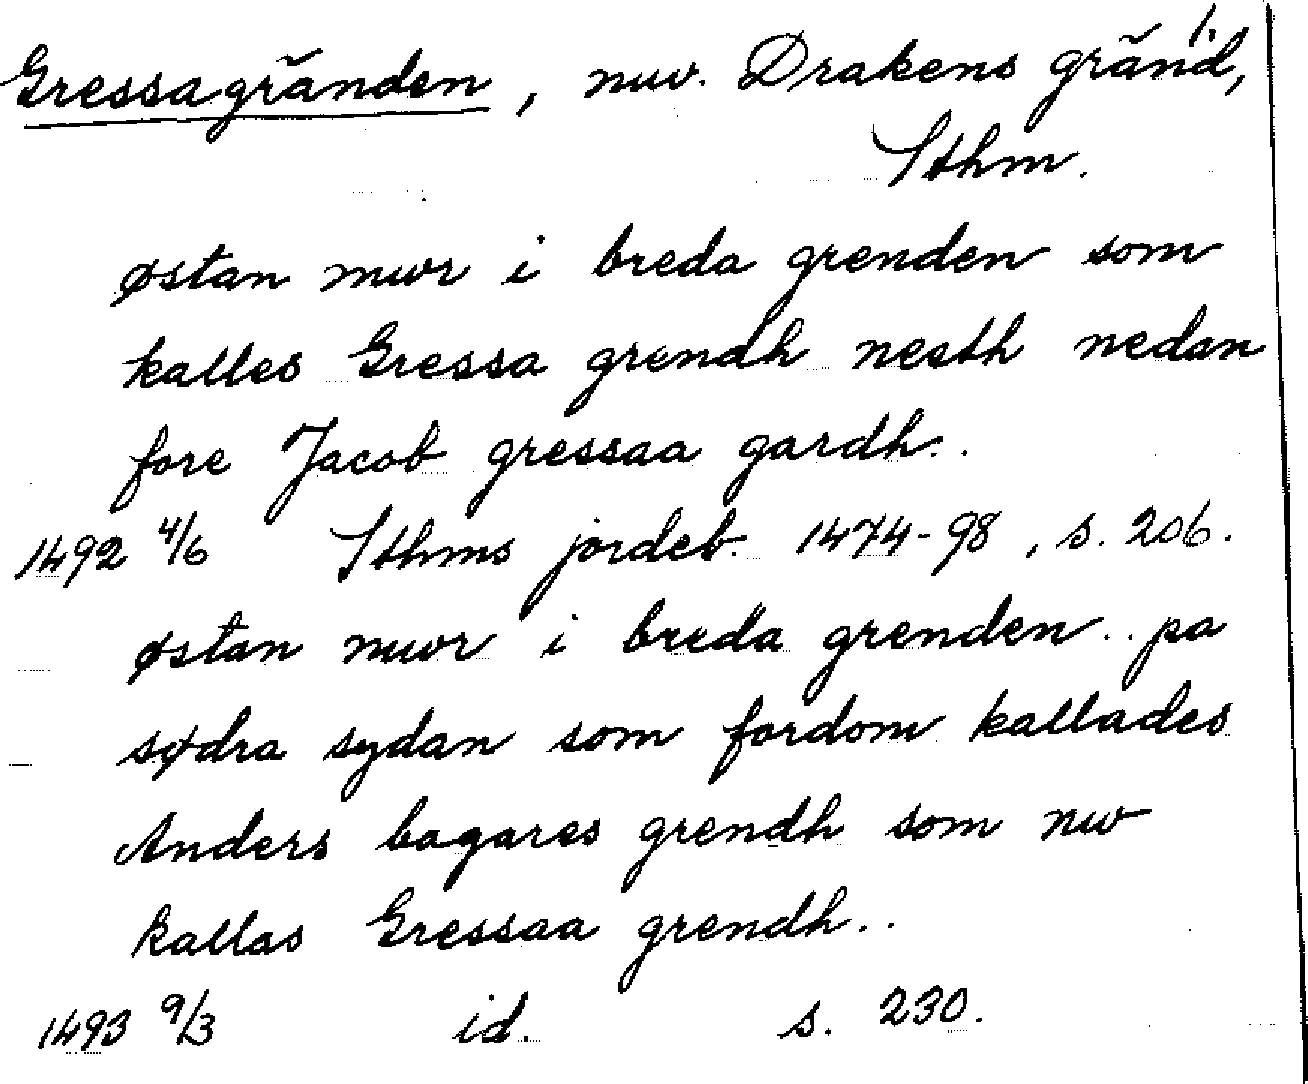 1.
Gressagränden, nuv. Drakens gränd,
Sthm.
østan mwr i breda grenden som
kalles Gressa grendh nesth nedan
fore Jacob gressaa gardh..
1492 4/6 Sthms jordeb. 1474-98, s. 206.
østan mwr i breda grenden.. pa
sødra sydan som fordom kallades
Anders bagares grendh som nw
kallas Gressaa grendh..
1493 9/3 id. s. 230.